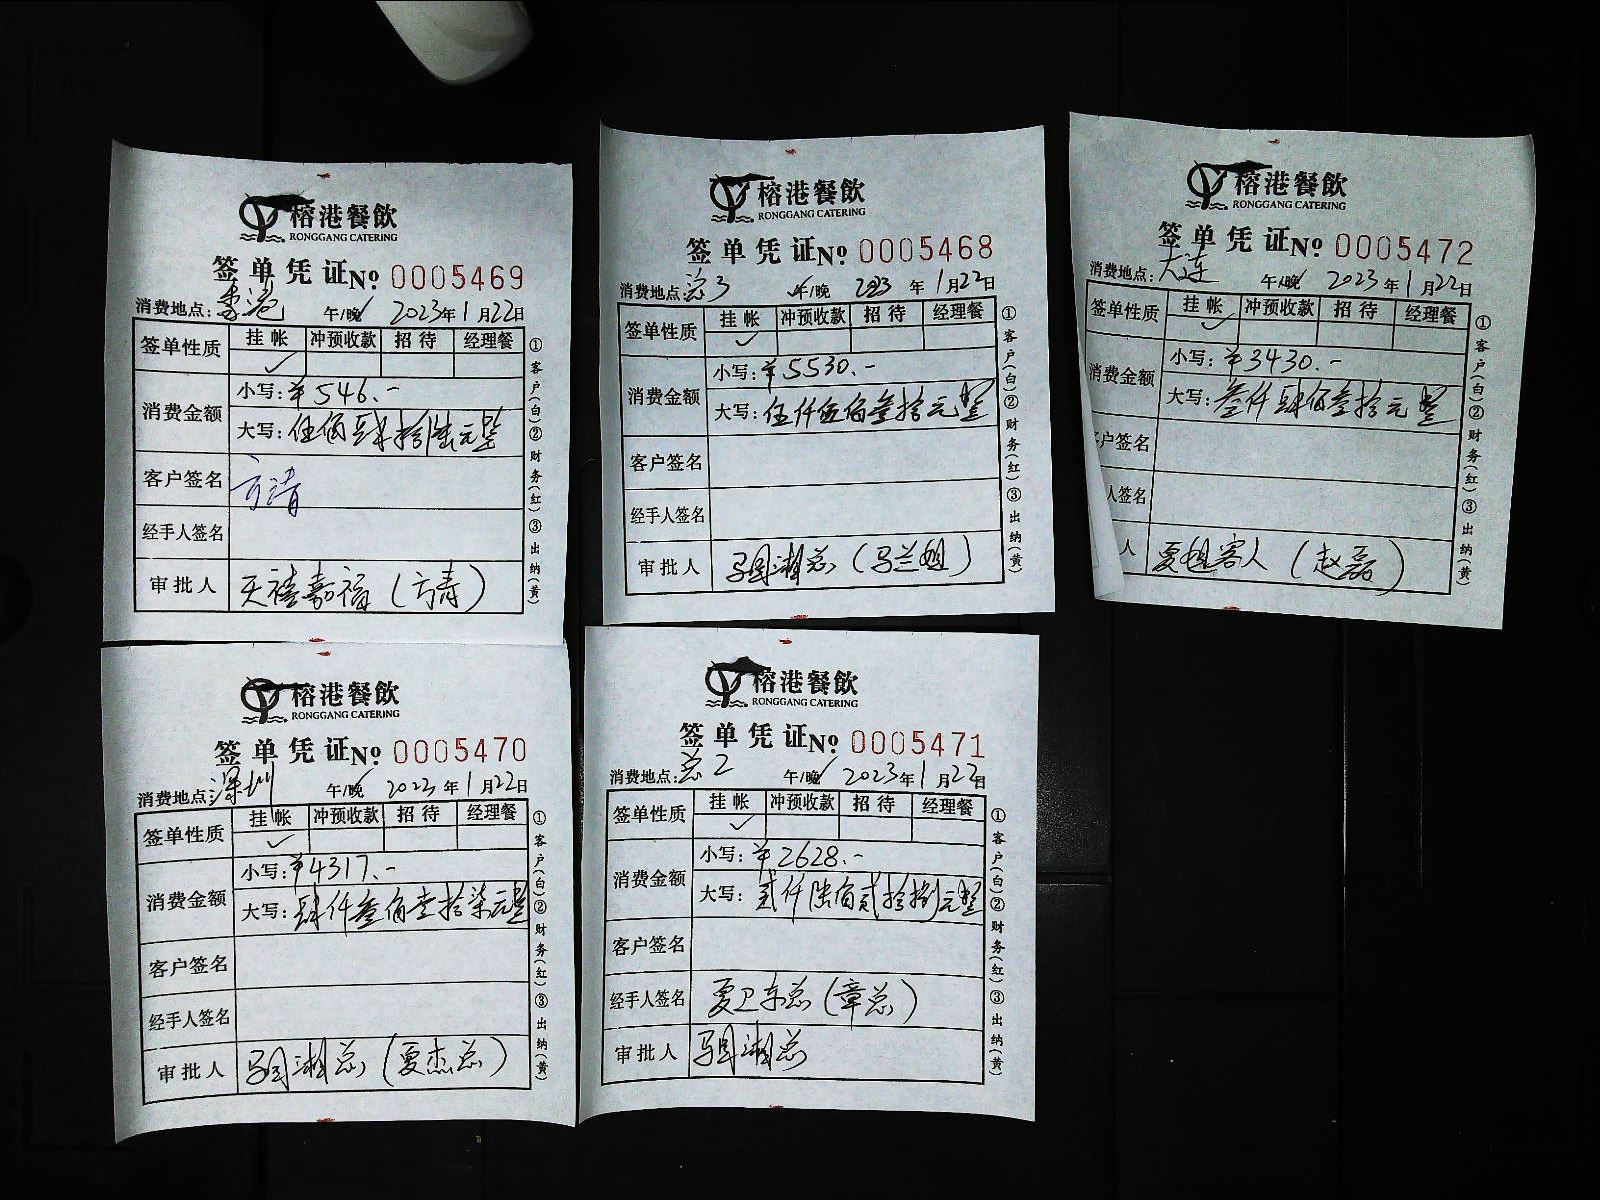 榕港餐飲
RONGGANG CATERING
签单凭证 No 0005469
消费地点: 香港 午/晚✓ 2023年1月22日
签单性质 挂帐 冲预收款 招待 经理餐
✓
消费金额
小写: ¥546.-
大写: 伍佰肆拾陆元整
客户签名 方靖
经手人签名
审批人 天禧嘉福(方靖)
①客户(白)②财务(红)③出纳(黄)
榕港餐飲
RONGGANG CATERING
签单凭证 No 0005468
消费地点: 总3 午/晚 2023年1月22日
签单性质 挂帐 冲预收款 招待 经理餐
✓
消费金额
小写: ¥5530.-
大写: 伍仟伍佰叁拾元整
客户签名
经手人签名
审批人 湘总(马兰姐)
①客户(白)②财务(红)③出纳(黄)
榕港餐飲
RONGGANG CATERING
签单凭证 No 0005472
消费地点: 大连 午/晚 2023年1月22日
签单性质 挂帐 冲预收款 招待 经理餐
✓
消费金额
小写: ¥3430.-
大写: 叁仟肆佰叁拾元整
客户签名
人签名
人 夏姐客人(赵磊)
①客户(白)②财务(红)③出纳(黄)
榕港餐飲
RONGGANG CATERING
签单凭证 No 0005470
消费地点: 深圳 午/晚✓ 2023年1月22日
签单性质 挂帐 冲预收款 招待 经理餐
✓
消费金额
小写: ¥4317.-
大写: 肆仟叁佰壹拾柒元整
客户签名
经手人签名
审批人 湘总(夏杰总)
①客户(白)②财务(红)③出纳(黄)
榕港餐飲
RONGGANG CATERING
签单凭证 No 0005471
消费地点: 总2 午/晚✓ 2023年1月22日
签单性质 挂帐 冲预收款 招待 经理餐
✓
消费金额
小写: ¥2628.-
大写: 贰仟陆佰贰拾捌元整
客户签名
经手人签名 夏卫东总(章总)
审批人 湘总
①客户(白)②财务(红)③出纳(黄)